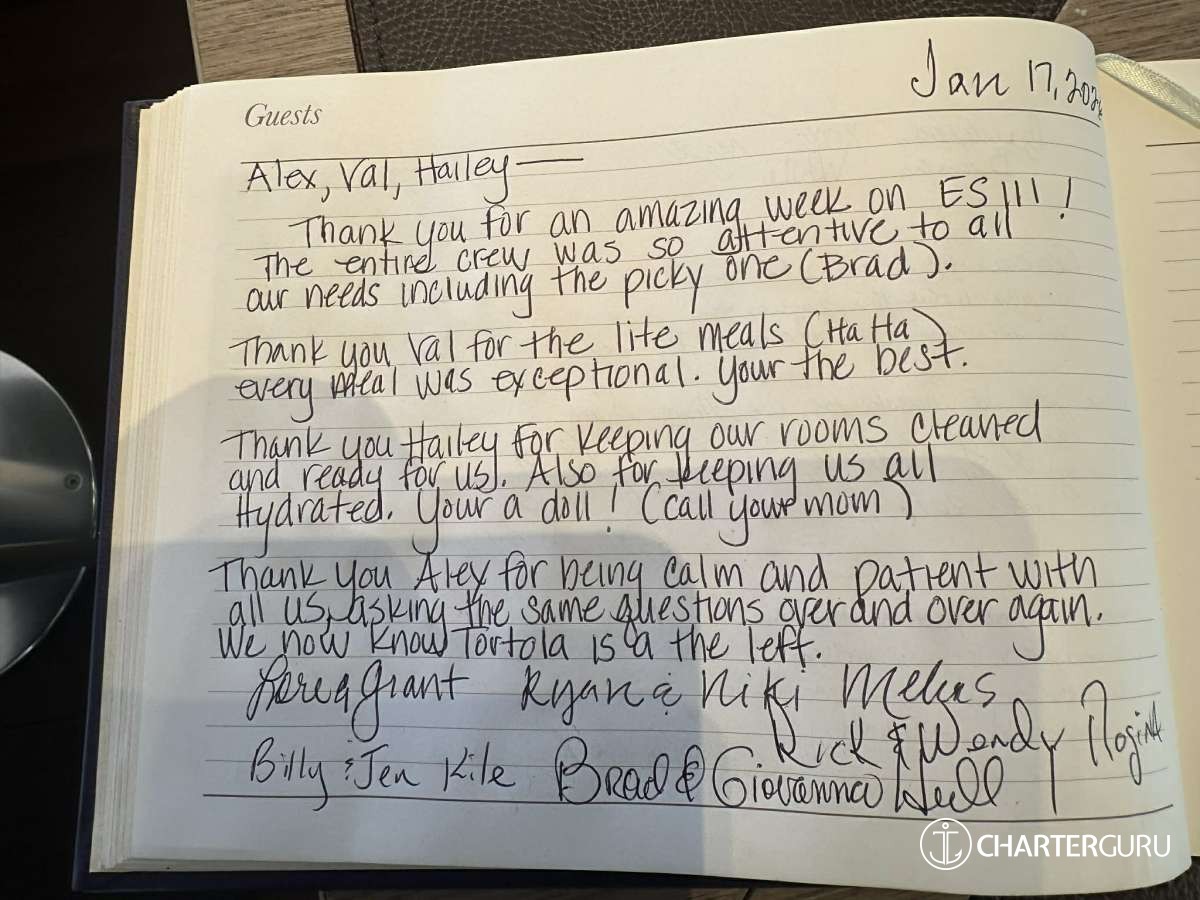 Jan 17, 202
Guests
Alex, Val, Hailey —
Thank you for an amazing week on ES III !
The entire crew was so attentive to all
our needs including the picky one (Brad).
Thank you Val for the lite meals (Ha Ha)
every meal was exceptional. Your the best.
Thank you Hailey for keeping our rooms cleaned
and ready for us). Also for keeping us all
Hydrated. Your a doll ! (call your mom)
Thank you Alex for being calm and patient with
all us, asking the same questions over and over again.
We now know Tortola is a the left.
Grant Ryan & Niki
Rick & Wendy
Billy & Jen Kile Brad & Giovanna
CHARTERGURU